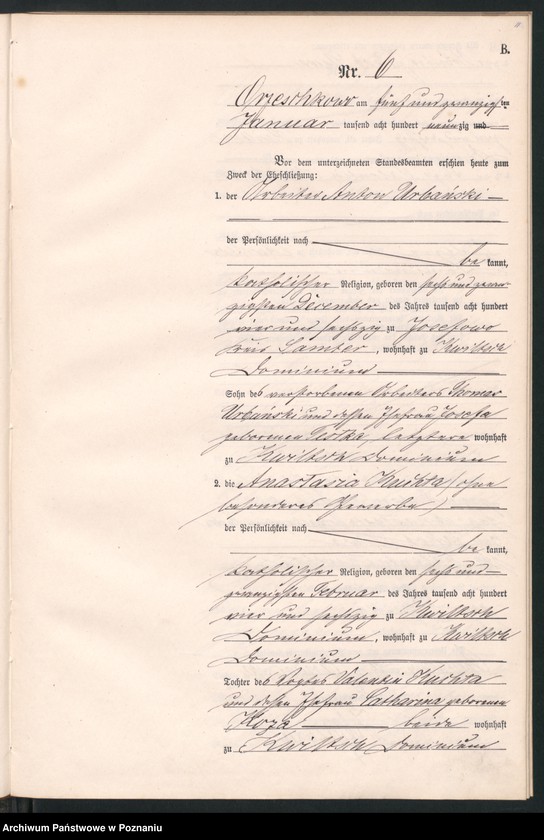 B.
Nr. 6
Orzeschkowo am fünf und zwanzigsten
Januar tausend acht hundert neunzig und
Vor dem unterzeichneten Standesbeamten erschien heute zum
Zweck der Eheschließung:
1. der Arbeiter Anton Urbański
der Persönlichkeit nach
be kannt,
katholischer Religion, geboren den sechs und zwan-
zigsten December des Jahres tausend acht hundert
vier und sechszig zu Josefowo
Kreis Samter, wohnhaft zu Kwiltsch
Dominium
Sohn des verstorbenen Arbeiters Thomas
Urbański und dessen Ehefrau Josefa
geborenen letztere wohnhaft
zu Kwiltsch Dominium
2. die Anastasia Kuchta (ohne
besonderes Gewerbe)
der Persönlichkeit nach
be kannt,
katholischer Religion, geboren den sechs und
zwanzigsten Februar des Jahres tausend acht hundert
vier und sechszig zu Kwiltsch
Dominium, wohnhaft zu Kwiltsch
Dominium
Tochter des Vogtes Valentin Kuchta
und dessen Ehefrau Catharina geborenen
Koza beide wohnhaft
zu Kwiltsch Dominium
Archiwum Państwowe w Poznaniu